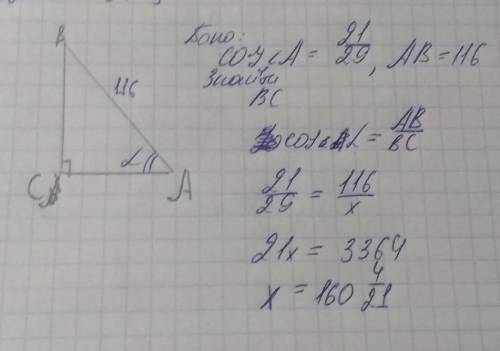 B
116
α
C
A
cos<A = 21/29, AB = 116
Знайти
BC
cos α = AB/BC
21/29 = 116/x
21x = 3364
x = 160 4/21